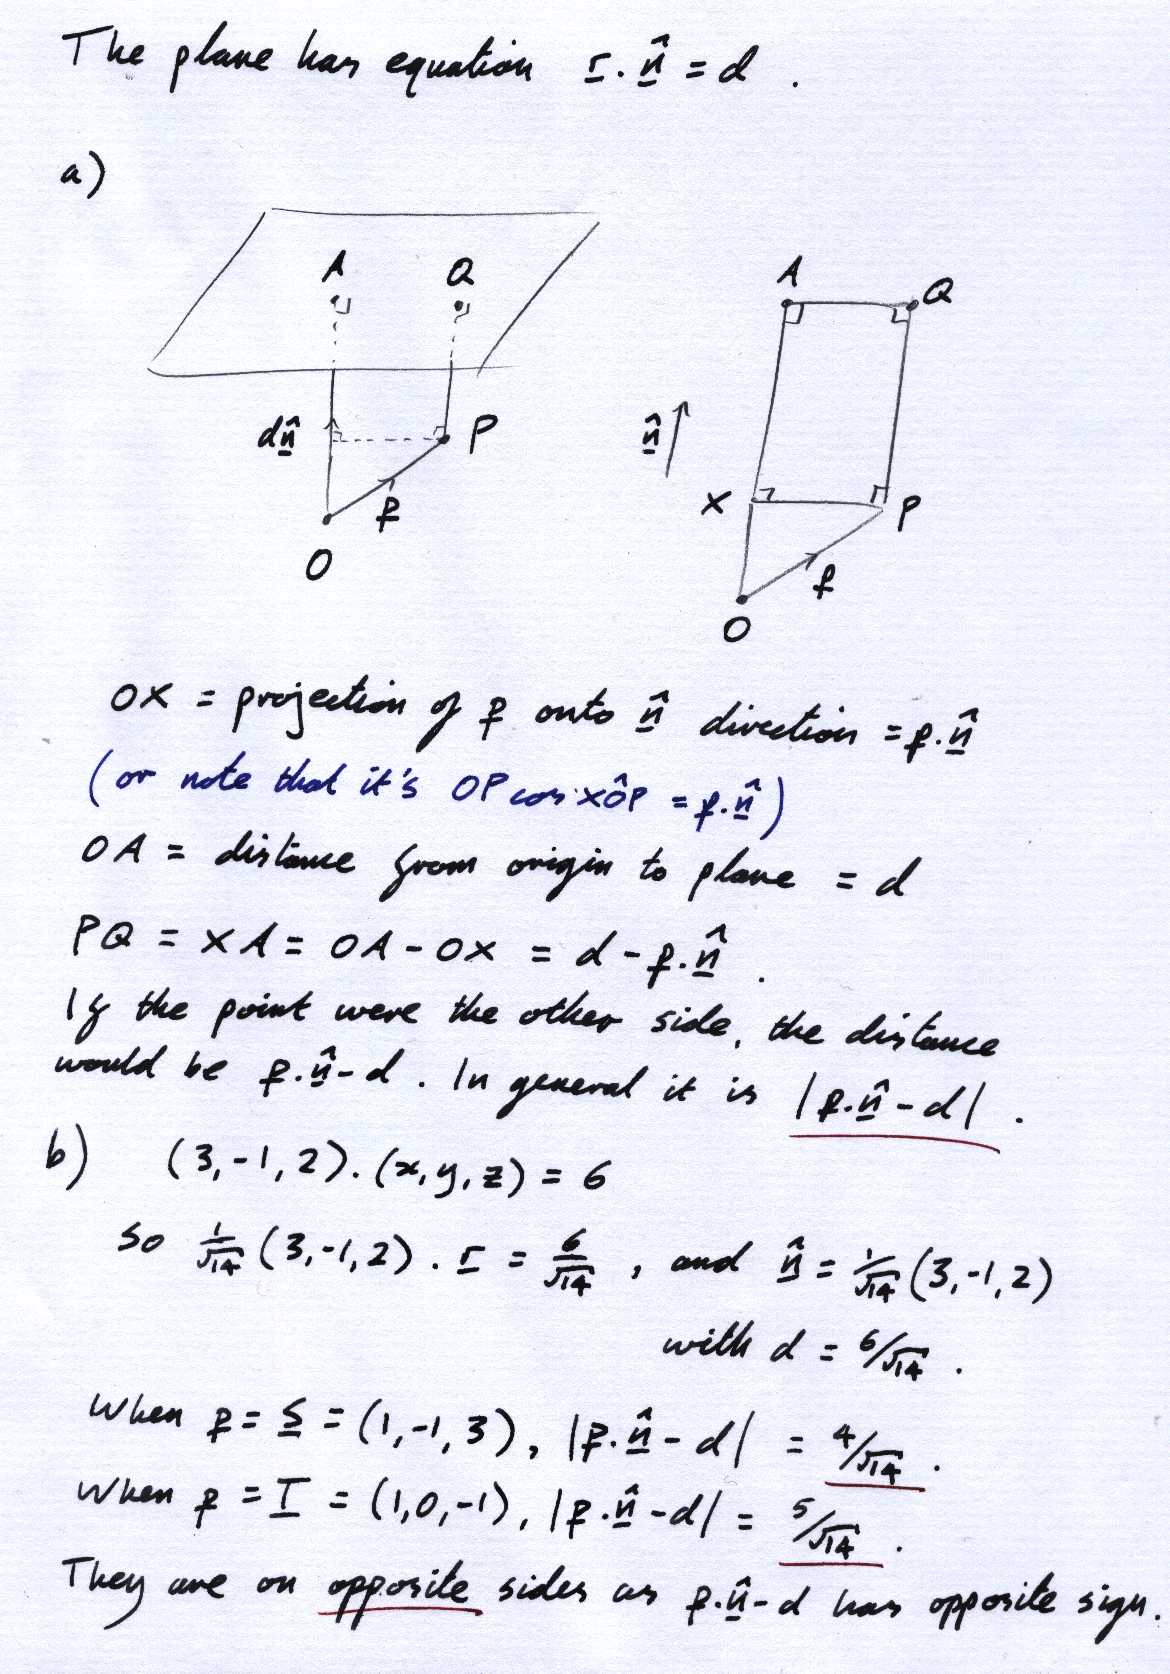 The plane has equation r̲.n̲̂ = d .
a)
A Q
A Q
dn̲̂ P
n̲̂
X P
p̲
p̲
O
O
OX = projection of p̲ onto n̲̂ direction = p̲.n̲̂
(or note that it's OP cos XÔP = p̲.n̲̂)
OA = distance from origin to plane = d
PQ = XA = OA - OX = d - p̲.n̲̂ .
If the point were the other side, the distance
would be p̲.n̲̂ - d . In general it is |p̲.n̲̂ - d| .
b) (3,-1,2).(x,y,z) = 6
So 1/√14 (3,-1,2) . r̲ = 6/√14 , and n̲̂ = 1/√14 (3,-1,2)
with d = 6/√14 .
When p̲ = S̲ = (1,-1,3), |p̲.n̲̂ - d| = 4/√14 .
When p̲ = T̲ = (1,0,-1), |p̲.n̲̂ - d| = 5/√14 .
They are on opposite sides as p̲.n̲̂ - d has opposite sign.